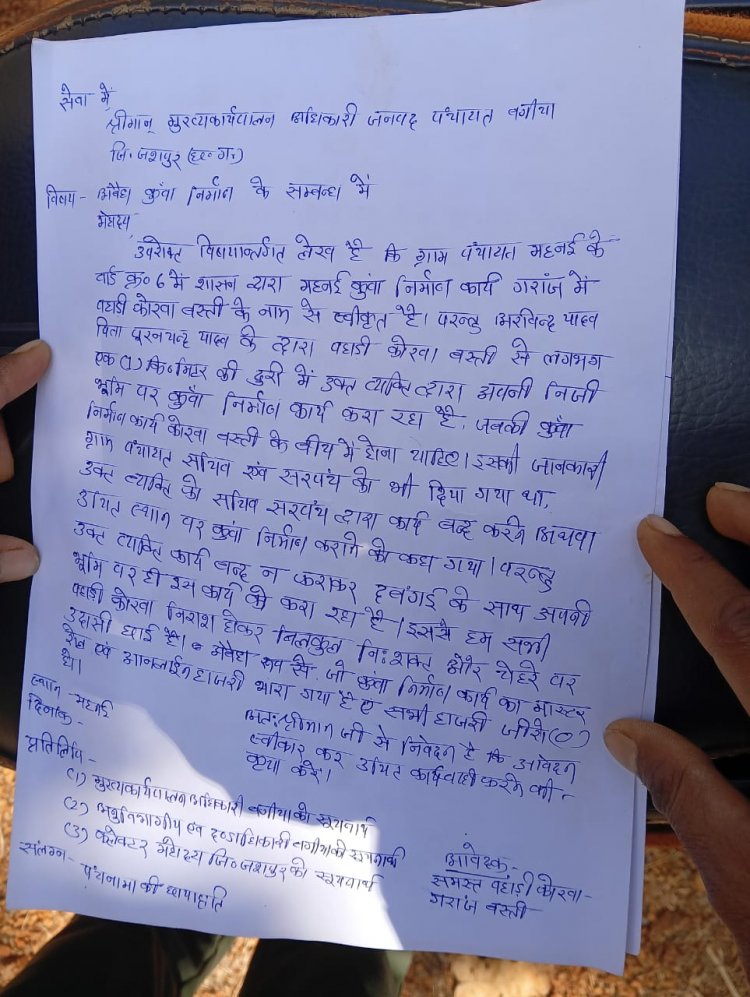 सेवा में
श्रीमान् मुख्यकार्यपालन अधिकारी जनपद पंचायत बगीचा
जि. जशपुर (छ०ग०)
विषय- अवैध कुंवा निर्माण के सम्बन्ध में
महोदय
उपरोक्त विषयान्तर्गत लेख है कि ग्राम पंचायत महनई के
वार्ड क्र० 6 में शासन द्वारा महनई कुंवा निर्माण कार्य गरांज में
पहाडी कोरवा बस्ती के नाम से स्वीकृत है। परन्तु अरविन्द यादव
पिता पूरनचन्द्र यादव के द्वारा पहाडी कोरवा बस्ती से लगभग
एक (1) कि०मिटर की दुरी में उक्त व्यक्ति द्वारा अपनी निजी
भूमि पर कुंवा निर्माण कार्य करा रहा है, जबकी कुंवा
निर्माण कार्य कोरवा बस्ती के बीच में होना चाहिए। इसकी जानकारी
ग्राम पंचायत सचिव एवं सरपंच को भी दिया गया था,
उक्त व्यक्ति को सचिव सरपंच द्वारा कार्य बन्द करने अथवा
उचित स्थान पर कुंवा निर्माण कराने को कहा गया। परन्तु
उक्त व्यक्ति कार्य बन्द न कराकर दबंगई के साथ अपनी
भूमि पर ही इस कार्य को करा रहा है। इससे हम सभी
पहाडी कोरवा निराश होकर बिलकुल नि:शक्त और चेहरे पर
उदासी छाई है। अवैध रूप से जो कुंवा निर्माण कार्य का मास्टर
रोल एवं आनलाईन हाजरी भरा गया है सभी हाजरी जीरो (0)
है।
अत: श्रीमान जी से निवेदन है कि आवेदन
स्वीकार कर उचित कार्यवाही करने की-
कृपा करें।
स्थान - महनई
दिनांक-
प्रतिलिपि-
(1) मुख्यकार्यपालन अधिकारी बगीचा को सूचनार्थ
(2) अनुविभागीय एवं दण्डाधिकारी बगीचा को सूचनार्थ
(3) कलेक्टर महोदय जि० जशपुर को सूचनार्थ
संलग्न- पंचनामा की छायाप्रति
आवेदक-
समस्त पहाडी कोरवा-
गरांज बस्ती